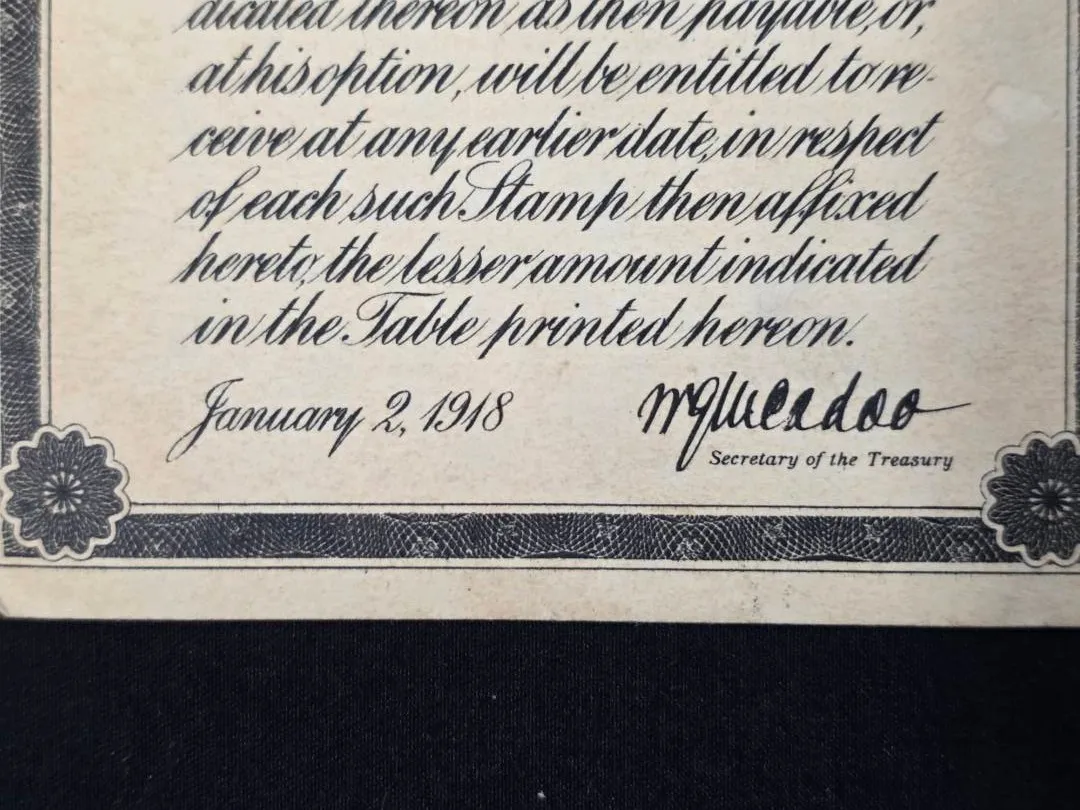 dicated thereon as then payable, or,
at his option, will be entitled to re-
ceive at any earlier date, in respect
of each such Stamp then affixed
hereto, the lesser amount indicated
in the Table printed hereon.
January 2, 1918
WGMcAdoo
Secretary of the Treasury